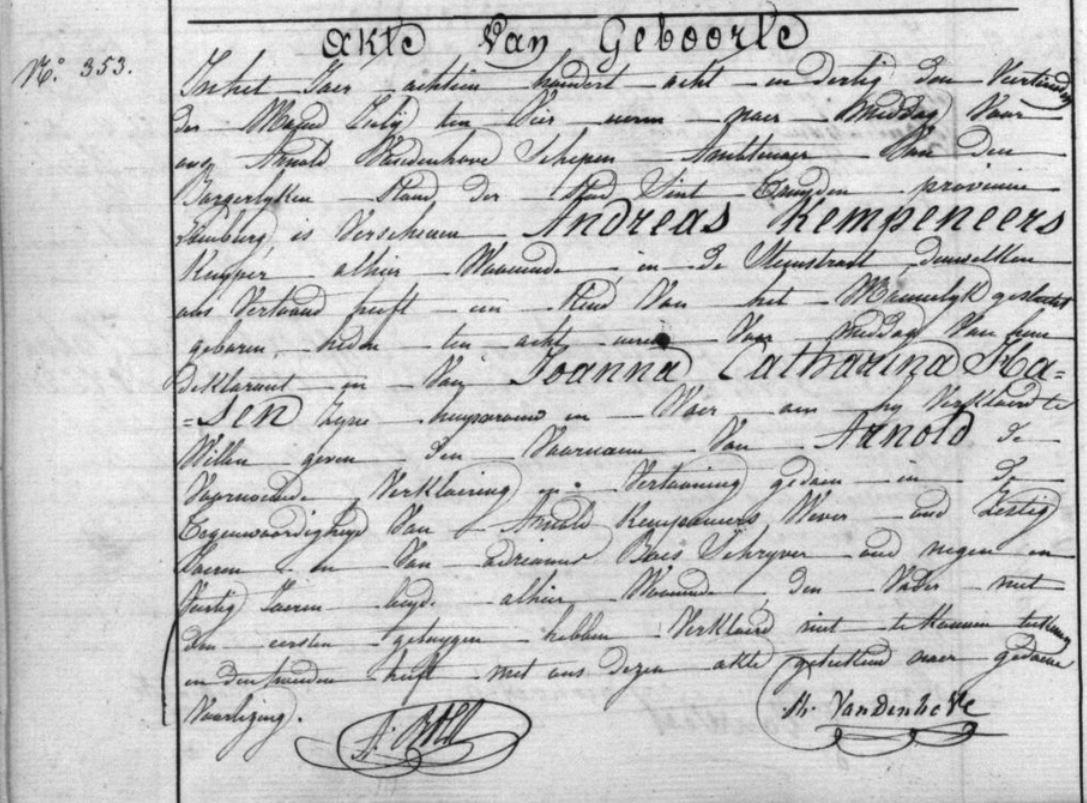 Akte Van Geboorte
N.° 353.
In het Jaer achtien hondert acht en dertig den Veertienden
der Maend July ten Vier ueren naer Middag Voor
ons Arnold Vandenhove Schepen Ambtenaer Van den
Borgerlyken Stand der Stad Sint Truyden provincie
Limburg, is Verschenen Andreas Kempeneers
Kuyper alhier Woonende in de Steenstraet denwelken
ons Vertoond heeft een Kind Van het Mannelyk geslacht
geboren heden ten acht ueren Voor middag Van hem
deklarant en Van Joanna Catharina Ha-
=sen zyne huysvrouw en Waer aen hy Verklaerd te
Willen geven den Voornaem Van Arnold de
Voornoemde Verklaering en Vertooning gedaen in de
Tegenwoordigheyd Van Arnold Kempeneers Wever oud Zestig
Jaeren en Van adrianus Baes Schryver oud negen en
Veertig Jaeren beyde alhier Woonende, den Vader met
den eersten getuygen hebben Verklaerd niet te konnen teekenen
en den tweeden heeft met ons dezen akte geteekend naer gedaene
Voorlezing.
A. Vandenhove